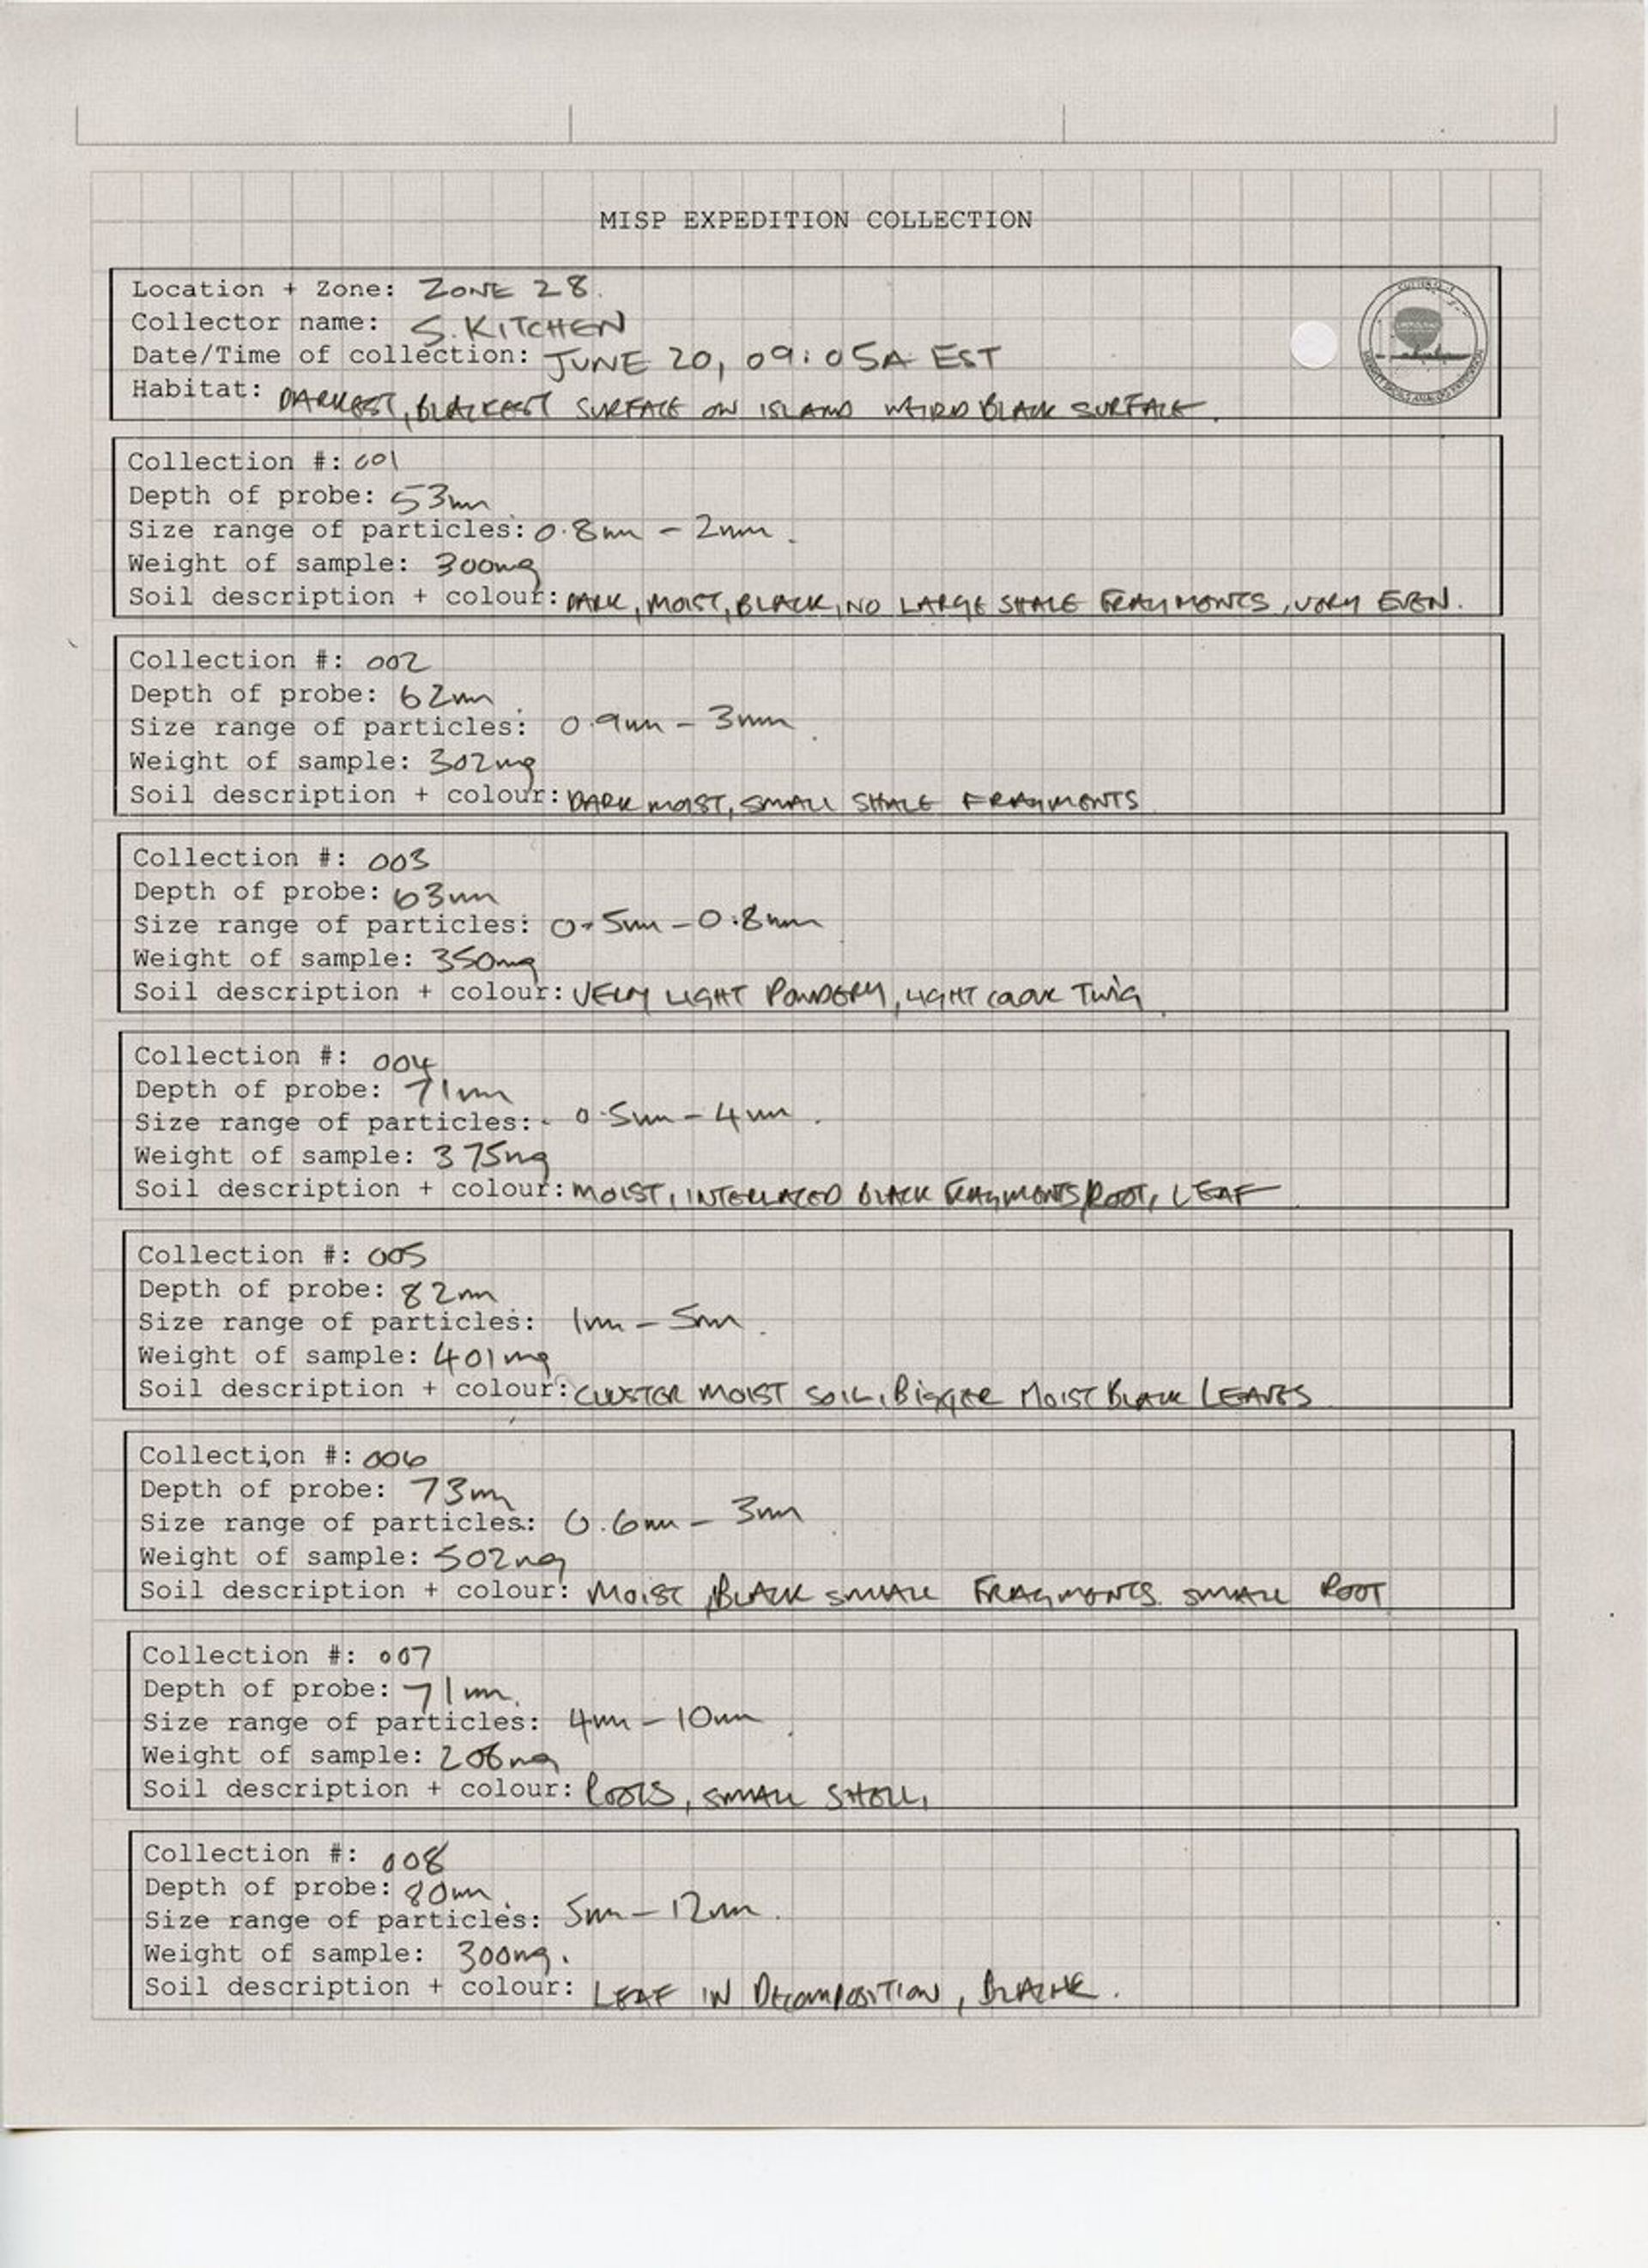 MISP EXPEDITION COLLECTION
Location + Zone: ZONE 28.
Collector name: S. KITCHEN
Date/Time of collection: JUNE 20, 09:05A EST
Habitat: DARKEST, BLACKEST SURFACE ON ISLAND WEIRD BLACK SURFACE.
Collection #: 001
Depth of probe: 53mm
Size range of particles: 0.8mm - 2mm.
Weight of sample: 300mg
Soil description + colour: DARK, MOIST, BLACK, NO LARGE SHALE FRAGMENTS, VERY EVEN.
Collection #: 002
Depth of probe: 62mm
Size range of particles: 0.9mm - 3mm
Weight of sample: 302mg
Soil description + colour: DARK MOIST, SMALL SHALE FRAGMENTS
Collection #: 003
Depth of probe: 63mm
Size range of particles: 0.5mm - 0.8mm
Weight of sample: 350mg
Soil description + colour: VERY LIGHT POWDERY, LIGHT TWIG
Collection #: 004
Depth of probe: 71mm
Size range of particles: 0.5mm - 4mm.
Weight of sample: 375mg
Soil description + colour: MOIST, INTERLACED BLACK FRAGMENTS/ROOT, LEAF
Collection #: 005
Depth of probe: 82mm
Size range of particles: 1mm - 5mm.
Weight of sample: 401mg
Soil description + colour: CLUSTER MOIST SOIL, BIGGER MOIST BLACK LEAVES
Collection #: 006
Depth of probe: 73mm
Size range of particles: 0.6mm - 3mm
Weight of sample: 502mg
Soil description + colour: MOIST, BLACK SMALL FRAGMENTS SMALL ROOT
Collection #: 007
Depth of probe: 71mm.
Size range of particles: 4mm - 10mm
Weight of sample: 206mg
Soil description + colour: ROOTS, SMALL SHELL,
Collection #: 008
Depth of probe: 80mm
Size range of particles: 5mm - 12mm.
Weight of sample: 300mg.
Soil description + colour: LEAF IN DECOMPOSITION, BLACK.